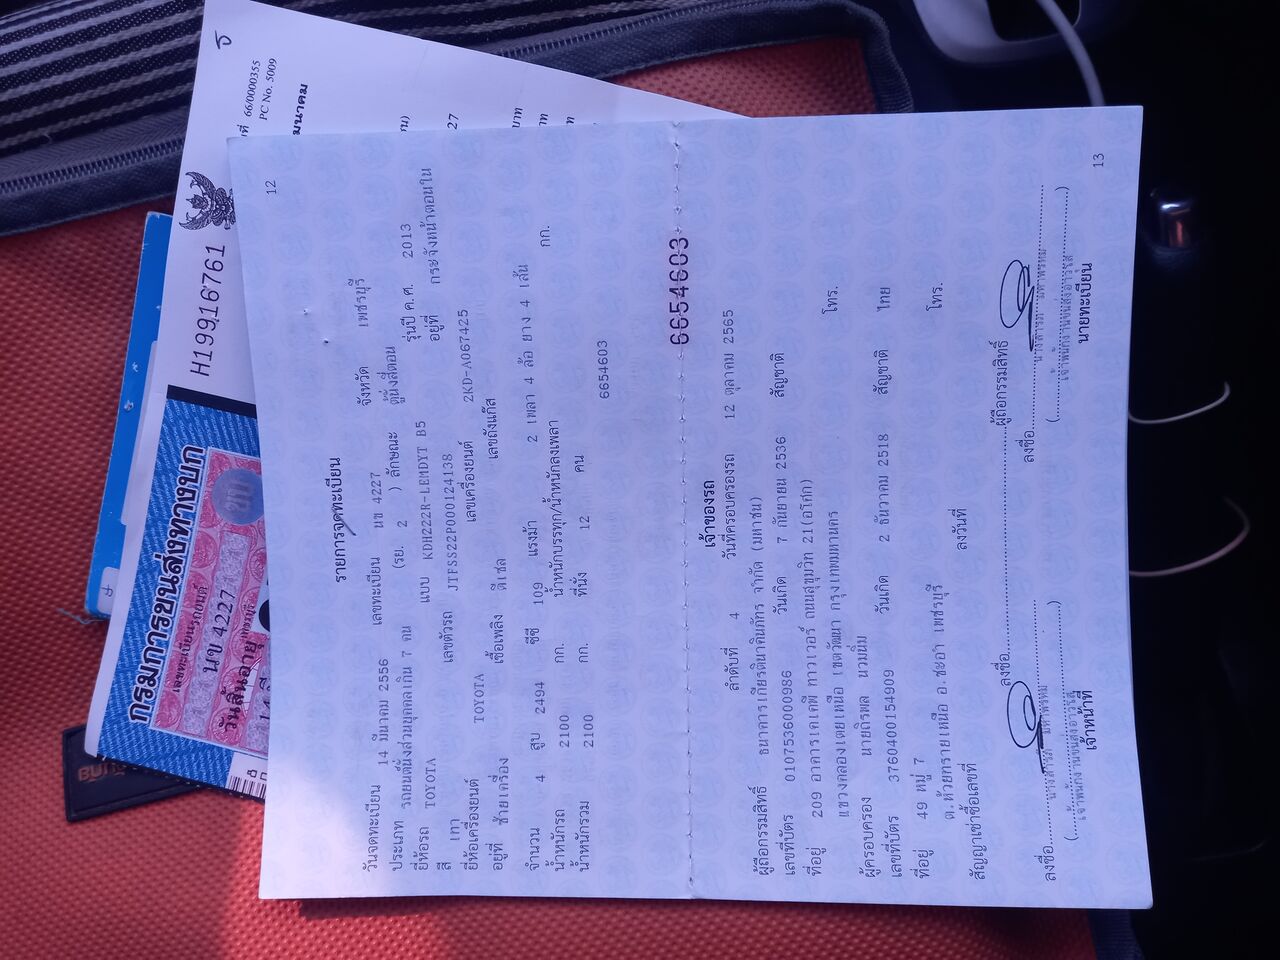 ที่ 66/0000355
PC No. 5009
H19916761
27
กรมการขนส่งทางบก
เลขทะเบียนรถยนต์
นข 4227
วันสิ้นอายุ
12
รายการจดทะเบียน
วันจดทะเบียน 14 มีนาคม 2556 เลขทะเบียน นข 4227 จังหวัด เพชรบุรี
ประเภท รถยนต์นั่งส่วนบุคคลเกิน 7 คน (รย. 2 ) ลักษณะ ตู้นั่งสี่ตอน
ยี่ห้อรถ TOYOTA แบบ KDH222R-LEMDYT B5 รุ่นปี ค.ศ. 2013
สี เทา เลขตัวรถ JTFSS22P000124138 อยู่ที่ กระจังหน้าตอนใน
ยี่ห้อเครื่องยนต์ TOYOTA เลขเครื่องยนต์ 2KD-A067425
อยู่ที่ ซ้ายเครื่อง เชื้อเพลิง ดีเซล เลขถังแก๊ส
จำนวน 4 สูบ 2494 ซีซี 109 แรงม้า 2 เพลา 4 ล้อ ยาง 4 เส้น
น้ำหนักรถ 2100 กก. น้ำหนักบรรทุก/น้ำหนักลงเพลา กก.
น้ำหนักรวม 2100 กก. ที่นั่ง 12 คน
6654603
6654603
เจ้าของรถ
ลำดับที่ 4 วันที่ครอบครองรถ 12 ตุลาคม 2565
ผู้ถือกรรมสิทธิ์ ธนาคารเกียรตินาคินภัทร จำกัด (มหาชน)
เลขที่บัตร 0107536000986 วันเกิด 7 กันยายน 2536 สัญชาติ
ที่อยู่ 209 อาคารเคเคพี ทาวเวอร์ ถนนสุขุมวิท 21(อโศก)
แขวงคลองเตยเหนือ เขตวัฒนา กรุงเทพมหานคร โทร.
ผู้ครอบครอง นายถิรพล นวมนิ่ม
เลขที่บัตร 3760400154909 วันเกิด 2 ธันวาคม 2518 สัญชาติ ไทย
ที่อยู่ 49 หมู่ 7
ต.ห้วยทรายเหนือ อ.ชะอำ เพชรบุรี โทร.
สัญญาเช่าซื้อเลขที่ ลงวันที่
ลงชื่อ ผู้ถือกรรมสิทธิ์
ลงชื่อ ลงชื่อ
เจ้าหน้าที่ นายทะเบียน
13